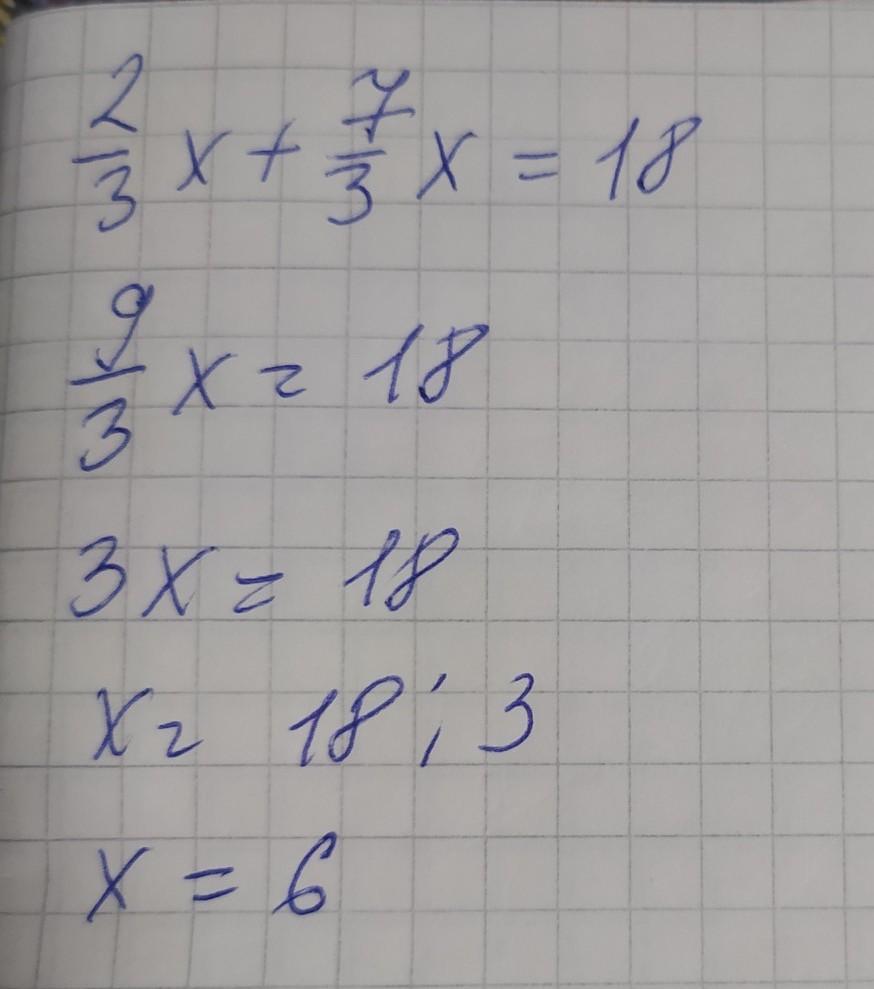 2/3 x + 7/3 x = 18
9/3 x = 18
3x = 18
x = 18 : 3
x = 6